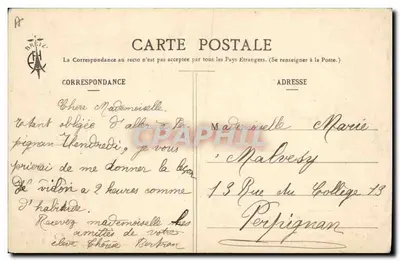 BREIC
CARTE POSTALE
La Correspondance au recto n'est pas acceptée par tous les Pays Etrangers. (Se renseigner à la Poste.)
CORRESPONDANCE
ADRESSE
Chère Mademoiselle.
étant obligée d'aller à
pignan Vendredi, je vous
prierai de me donner la leçon
de violon a 2 heures comme
d'habitude.
Recevez mademoiselle les
amitiés de votre
élève
Mademoiselle Marie
Malvesy
13 Rue du Collège 13
Perpignan
CPAPHIL